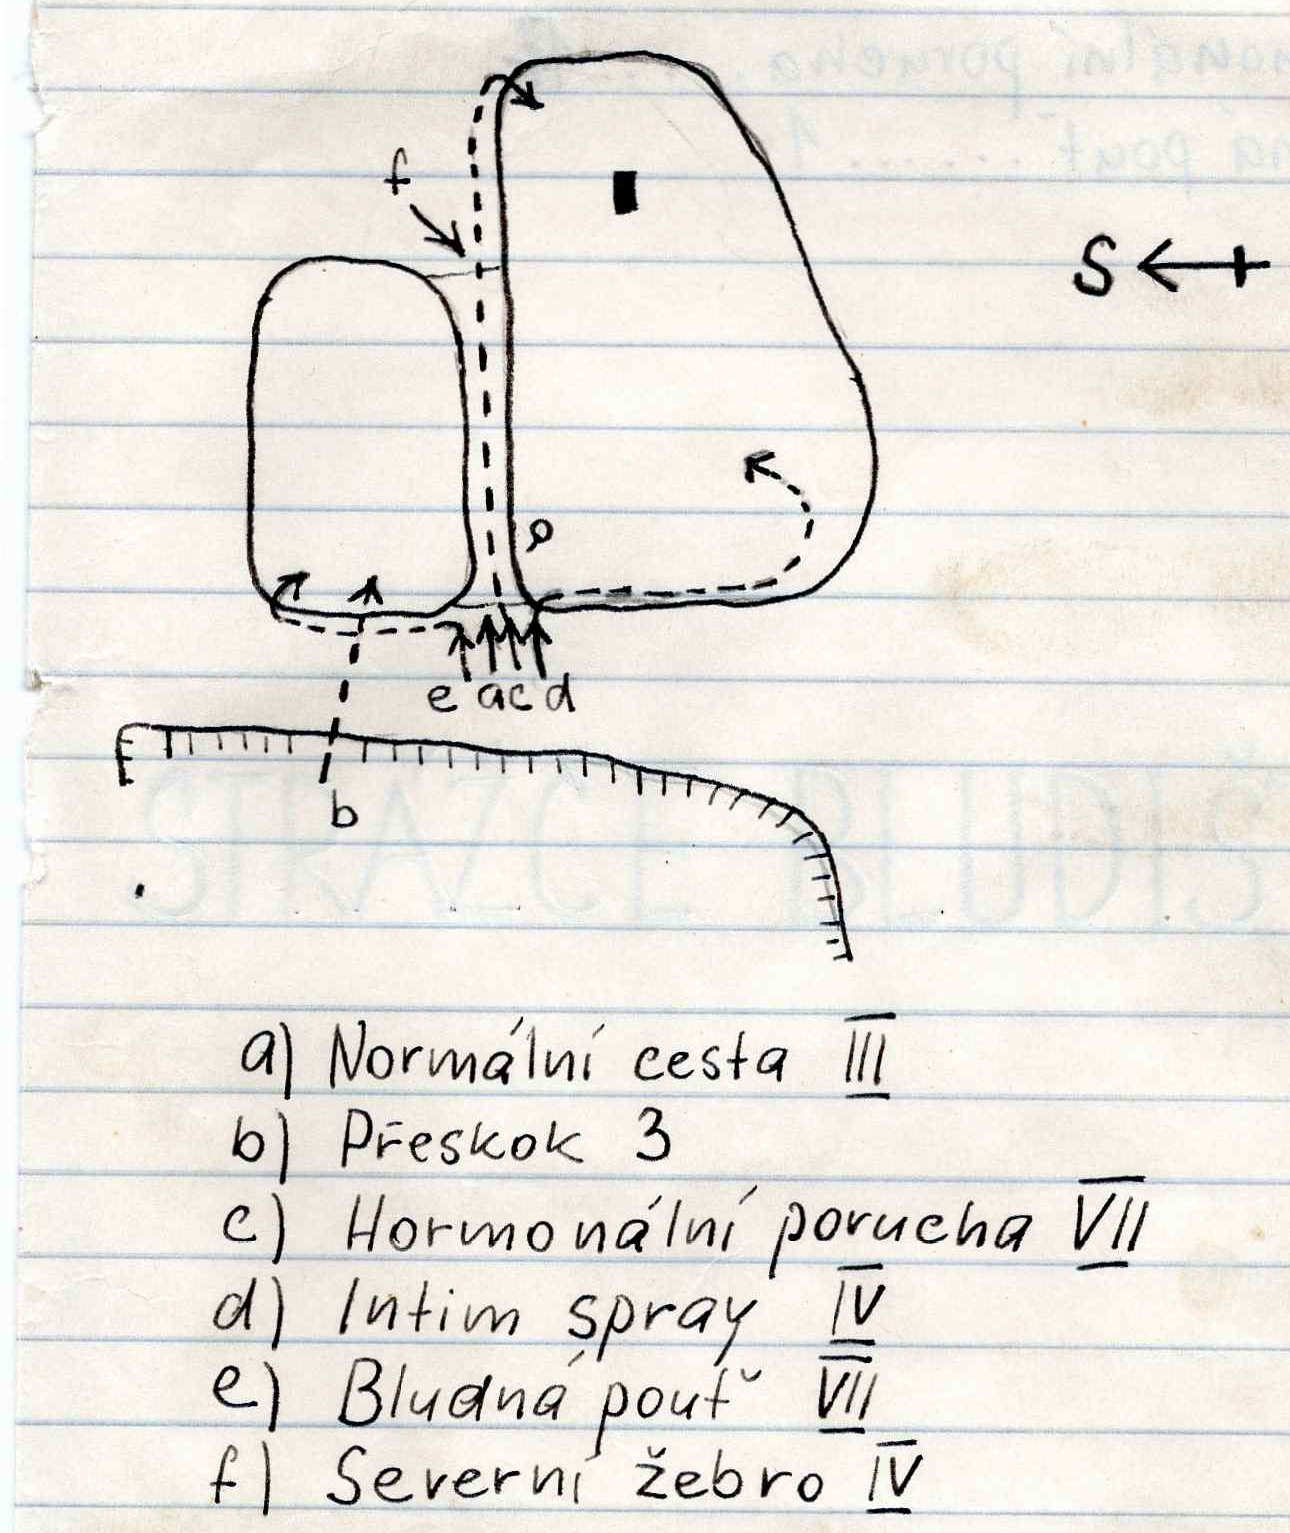 f
S
e a c d
b
a) Normální cesta III
b) Přeskok 3
c) Hormonální porucha VII
d) Intim spray IV
e) Bludná pouť VII
f) Severní žebro IV